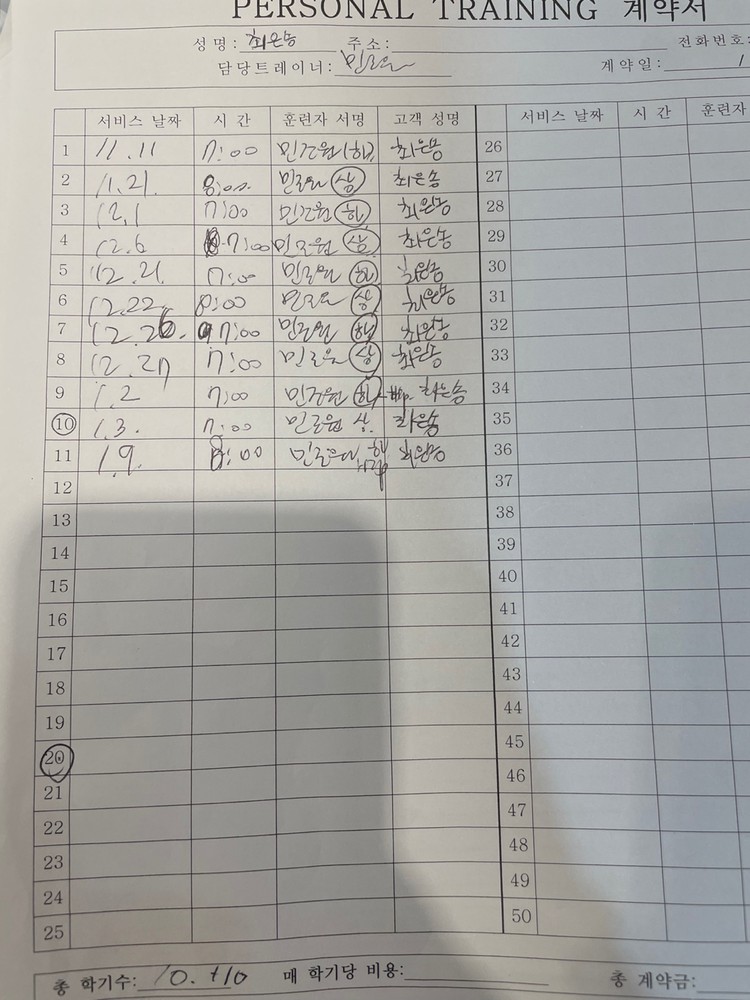 PERSONAL TRAINING 계약서
성명: 최은송 주소: 전화번호:
담당트레이너: 계약일:
서비스 날짜 시 간 훈련자 서명 고객 성명 서비스 날짜 시 간 훈련자
1 11.11 7:00 (하) 최은송 26
2 11.21. 8:00 상 최은송 27
3 12.1 7:00 하 최은송 28
4 12.6 7:00 상 최은송 29
5 12.21. 7:00 하 최은송 30
6 12.22 8:00 상 최은송 31
7 12.26. 7:00 하 최은송 32
8 12.27 7:00 상 최은송 33
9 1.2 7:00 하 최은송 34
10 1.3. 7:00 상. 최은송 35
11 1.9. 8:00 최은송 36
12 37
13 38
14 39
15 40
16 41
17 42
18 43
19 44
20 45
21 46
22 47
23 48
24 49
25 50
총 학기수: 10.+10 매 학기당 비용: 총 계약금: